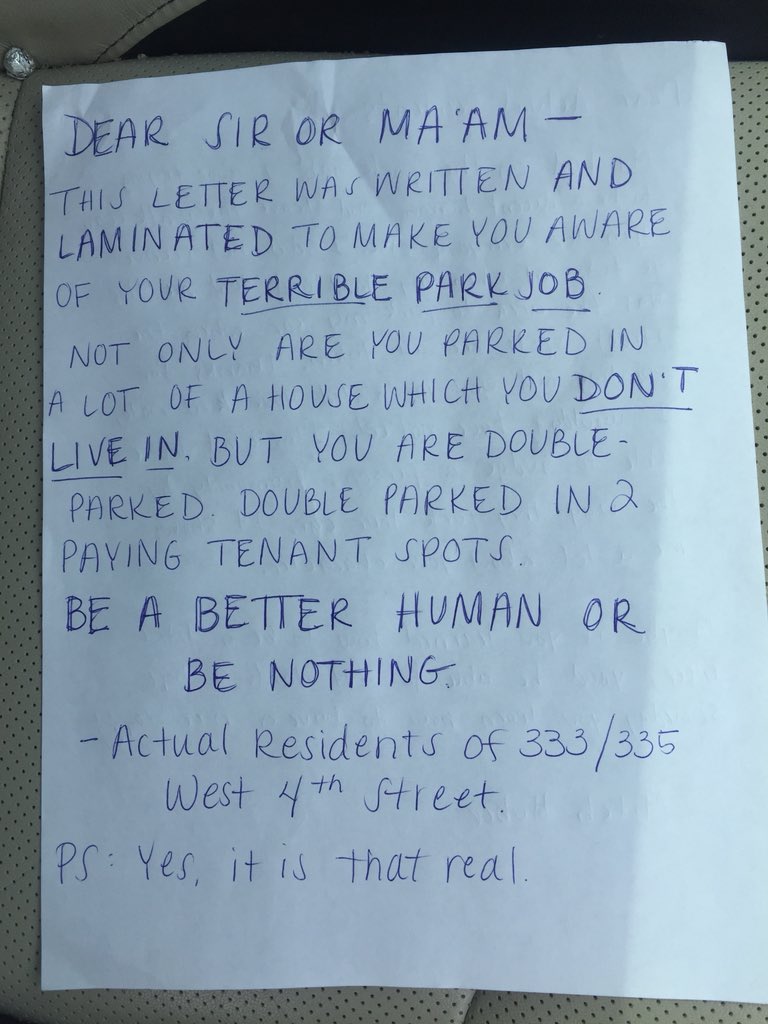 DEAR SIR OR MA'AM —
THIS LETTER WAS WRITTEN AND
LAMINATED TO MAKE YOU AWARE
OF YOUR TERRIBLE PARK JOB.
NOT ONLY ARE YOU PARKED IN
A LOT OF A HOUSE WHICH YOU DON'T
LIVE IN. BUT YOU ARE DOUBLE-
PARKED. DOUBLE PARKED IN 2
PAYING TENANT SPOTS.
BE A BETTER HUMAN OR
BE NOTHING.
- Actual Residents of 333/335
West 4th Street.
PS: Yes, it is that real.